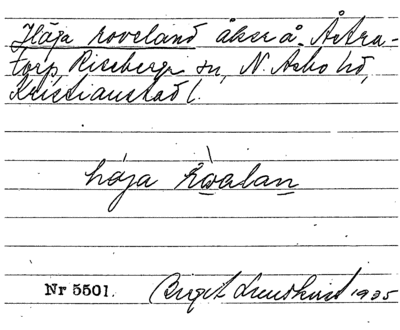 Höga roveland åker å Åstra-
torp Risebergа sn, N. Åsbo hd,
Kristianstad l.
höja rovalan
Nr 5501.
Birgit Lundkvist 1935